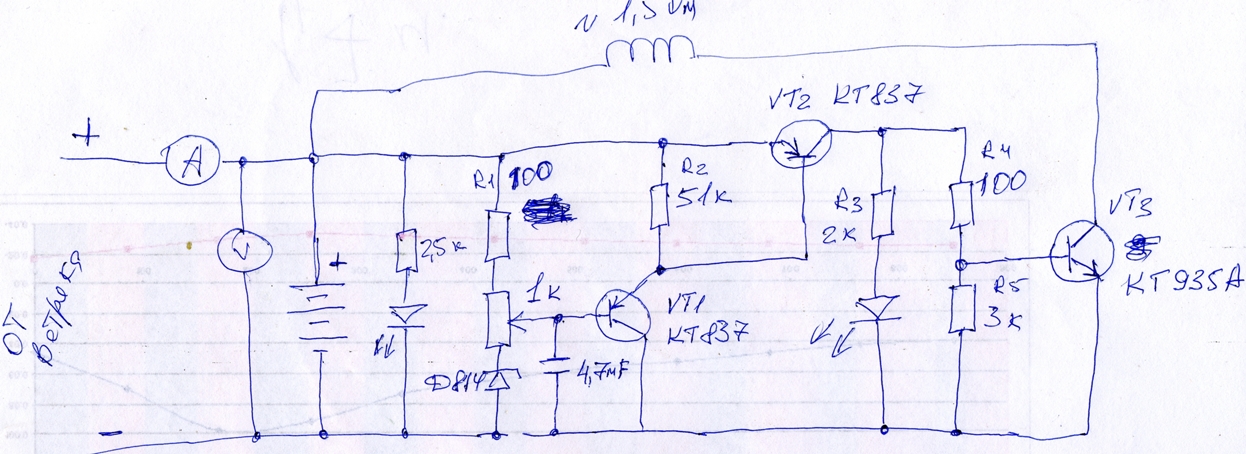 ~ 1,5 Ом
VT2 КТ837
+
A
R1 100
R2
51к
R4
100
R3
2к
VT3
КТ935А
V
+
2,5к
1к
VT1
КТ837
R5
3к
от
ветряка
Д814
4,7мF
-